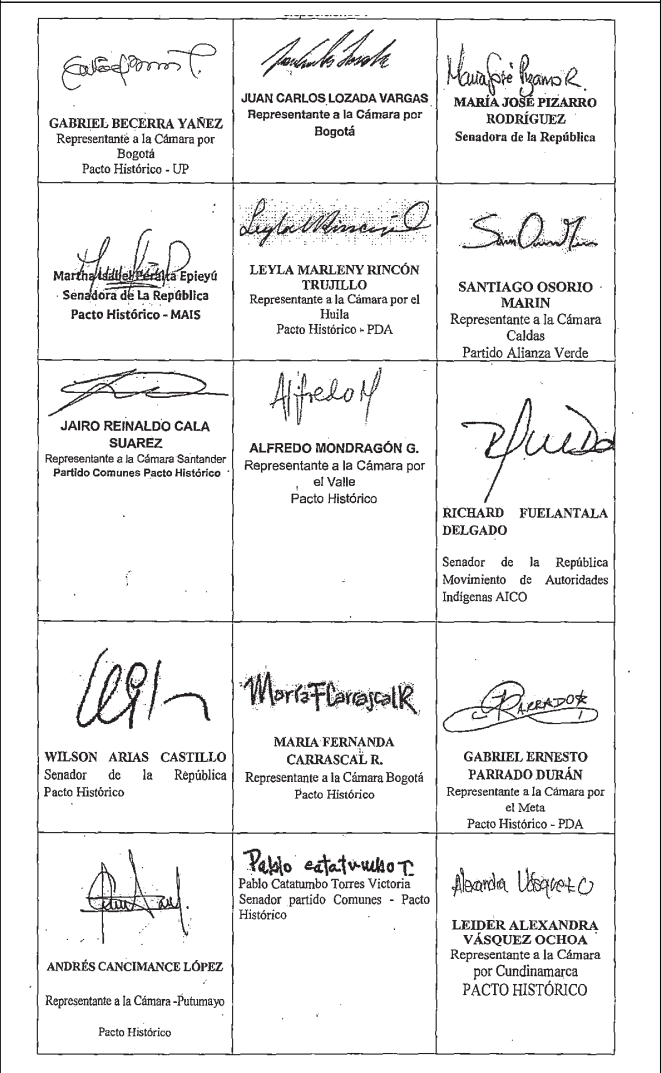 GABRIEL BECERRA YAÑEZ
Representante a la Cámara por
Bogotá
Pacto Histórico - UP
JUAN CARLOS LOZADA VARGAS
Representante a la Cámara por
Bogotá
María José Pizarro R.
MARÍA JOSÉ PIZARRO
RODRÍGUEZ
Senadora de la República
Martha Isabel Peralta Epieyú
Senadora de La República
Pacto Histórico - MAIS
LEYLA MARLENY RINCÓN
TRUJILLO
Representante a la Cámara por el
Huila
Pacto Histórico - PDA
SANTIAGO OSORIO
MARIN
Representante a la Cámara
Caldas
Partido Alianza Verde
JAIRO REINALDO CALA
SUAREZ
Representante a la Cámara Santander
Partido Comunes Pacto Histórico
Alfredo M
ALFREDO MONDRAGÓN G.
Representante a la Cámara por
el Valle
Pacto Histórico
RICHARD FUELANTALA
DELGADO
Senador de la República
Movimiento de Autoridades
Indígenas AICO
WILSON ARIAS CASTILLO
Senador de la República
Pacto Histórico
María F Carrascal R
MARIA FERNANDA
CARRASCAL R.
Representante a la Cámara Bogotá
Pacto Histórico
PARRADO
GABRIEL ERNESTO
PARRADO DURÁN
Representante a la Cámara por
el Meta
Pacto Histórico - PDA
ANDRÉS CANCIMANCE LÓPEZ
Representante a la Cámara -Putumayo
Pacto Histórico
Pablo catatumbo T.
Pablo Catatumbo Torres Victoria
Senador partido Comunes - Pacto
Histórico
Alexandra Vásquez O
LEIDER ALEXANDRA
VÁSQUEZ OCHOA
Representante a la Cámara
por Cundinamarca
PACTO HISTÓRICO